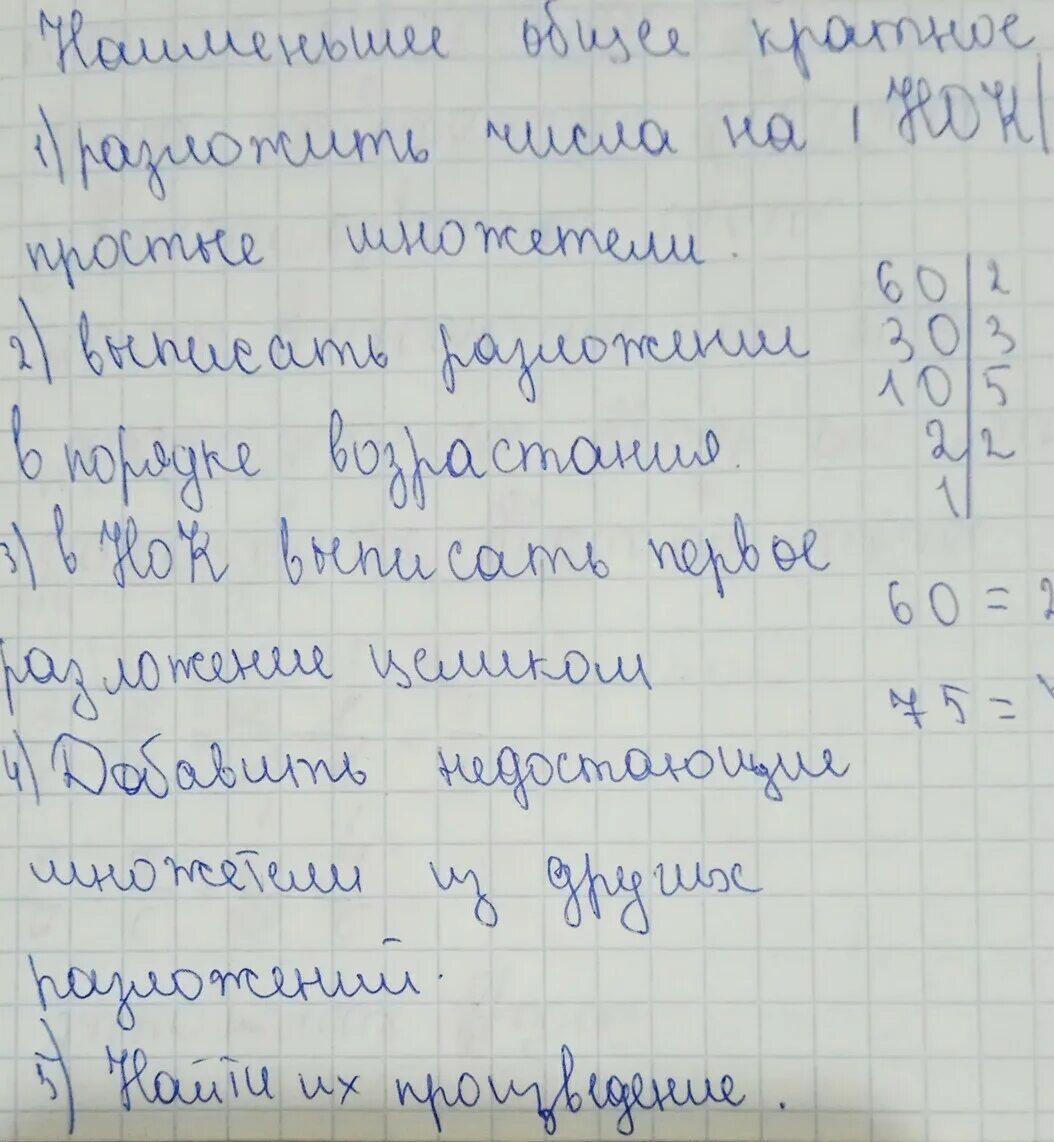 Наименьшее общее кратное
1) разложить числа на (НОК)
простые множетели.
60 | 2
2) выписать разложении
30 | 3
10 | 5
в порядке возрастания.
2 | 2
1 |
3) в НОК выписать первое
60 = 2
разложение целиком
75 =
4) Добавить недостающие
множетели из других
разложений.
5) Найти их произведение.